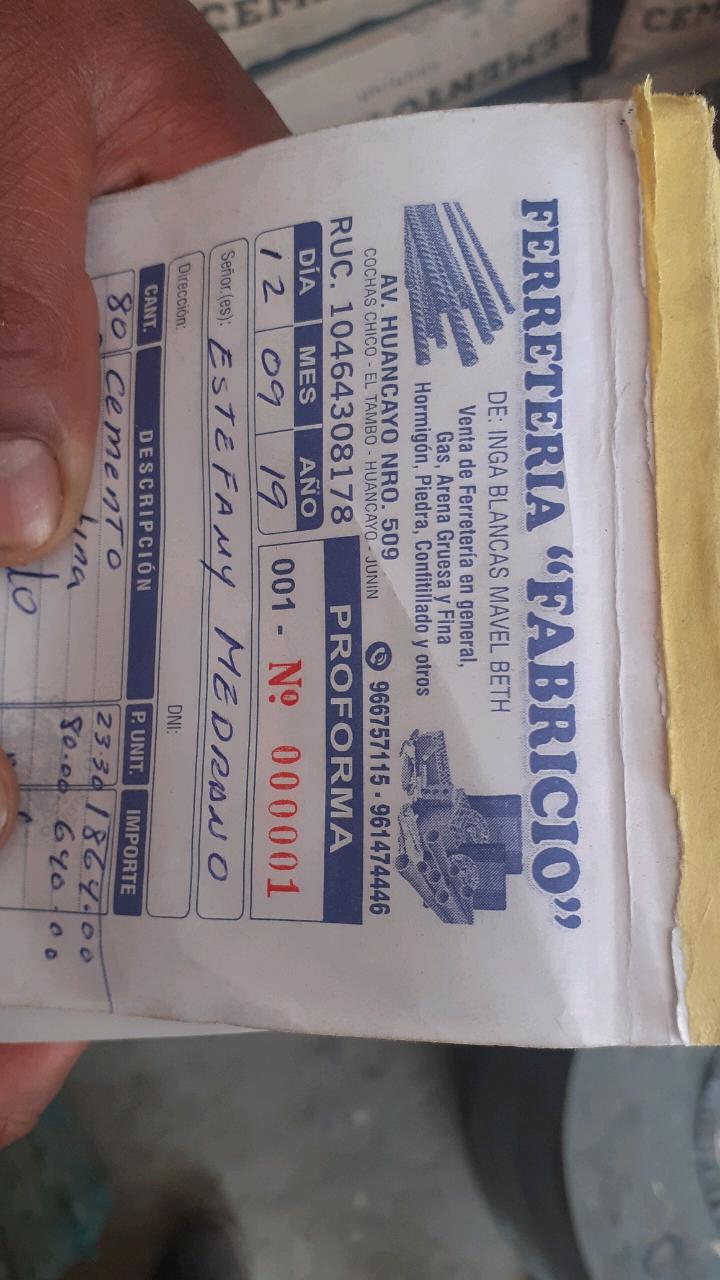 CEMENTO
CEM
FERRETERIA “FABRICIO”
DE: INGA BLANCAS MAVEL BETH
Venta de Ferretería en general,
Gas, Arena Gruesa y Fina
Hormigón, Piedra, Confitillado y otros
AV. HUANCAYO NRO. 509
COCHAS CHICO - EL TAMBO - HUANCAYO - JUNIN
966757115 - 961474446
RUC. 10464308178
PROFORMA
DÍA MES AÑO
12 09 19
001 - Nº 000001
Señor.(es): ESTEFANY MEDRANO
Dirección: DNI:
CANT. DESCRIPCIÓN P. UNIT. IMPORTE
80 Cemento 23.30 1864.00
80.00 640.00